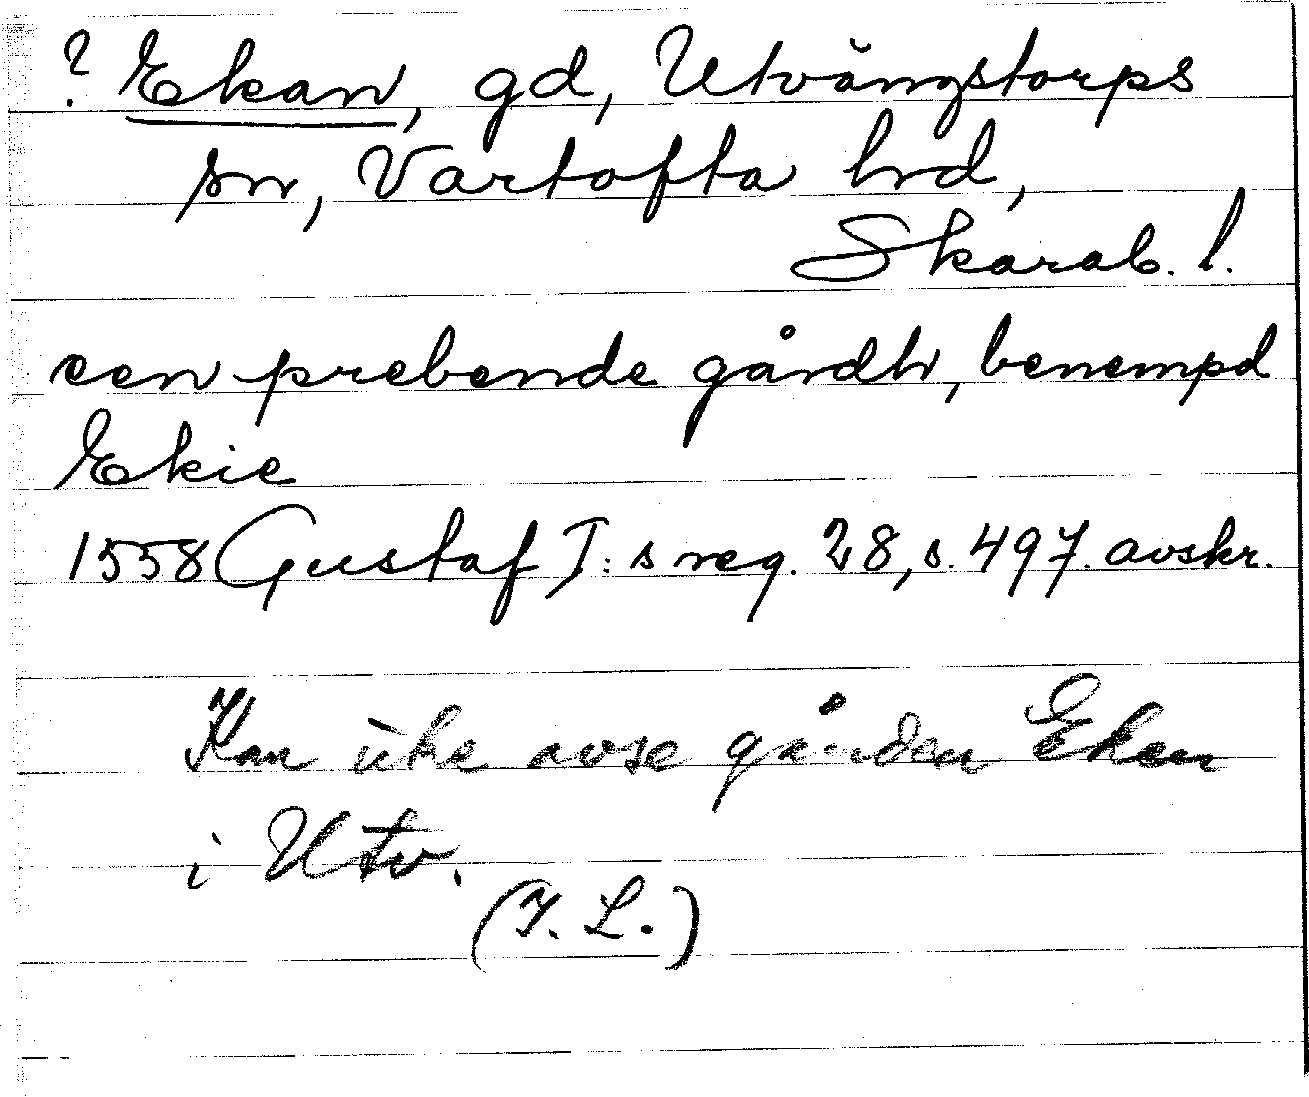 ? Ekan, gd, Utvängstorps
sn, Vartofta hrd,
Skarab. l.
een prebende gårdh, benempd
Ekie
1558 Gustaf I:s reg. 28, s. 497. avskr.
Kan icke avse gården Eken
i Utv.
(I. L.)